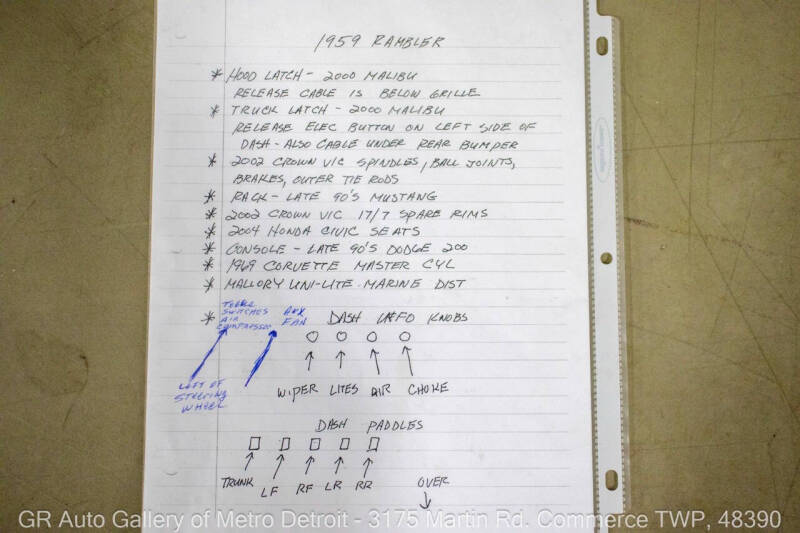 1959 RAMBLER
* HOOD LATCH - 2000 MALIBU
RELEASE CABLE IS BELOW GRILLE
* TRUCK LATCH - 2000 MALIBU
RELEASE ELEC BUTTON ON LEFT SIDE OF
DASH - ALSO CABLE UNDER REAR BUMPER
* 2002 CROWN VIC SPINDLES, BALL JOINTS,
BRAKES, OUTER TIE RODS
* RACK - LATE 90'S MUSTANG
* 2002 CROWN VIC 17/7 SPARE RIMS
* 2004 HONDA CIVIC SEATS
* CONSOLE - LATE 90'S DODGE 200
* 1969 CORVETTE MASTER CYL
* MALLORY UNI-LITE MARINE DIST
* DASH KNOBS
SWITCHES
AIR
AUX
FAN
LEFT OF
STEERING
WHEEL
WIPER LITES AIR CHOKE
DASH PADDLES
TRUNK LF RF LR RR
OVER
GR Auto Gallery of Metro Detroit - 3175 Martin Rd. Commerce TWP, 48390